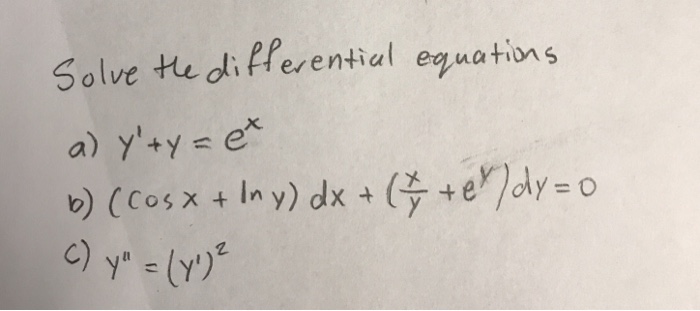 Solve the differential equations
a) y' + y = e^x
b) (cos x + ln y) dx + (x/y + e^y) dy = 0
c) y" = (y')^2